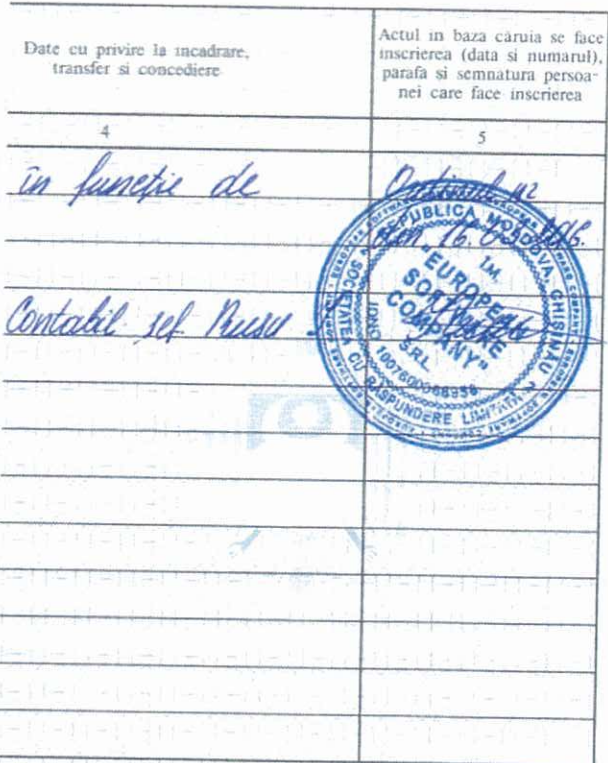 Date cu privire la incadrare,
transfer si concediere
Actul in baza căruia se face
inscrierea (data si numarul),
parafa si semnatura persoa-
nei care face inscrierea
4
5
în funcție de
Ordinul nr
din 16.03.
REPUBLICA MOLDOVA, CHISINAU
SOCIETATEA CU RASPUNDERE LIMITATA
I.M.
"EUROPEAN
SOFTWARE
COMPANY"
SRL
IDNO 1007600066936
Contabil șef Rusu